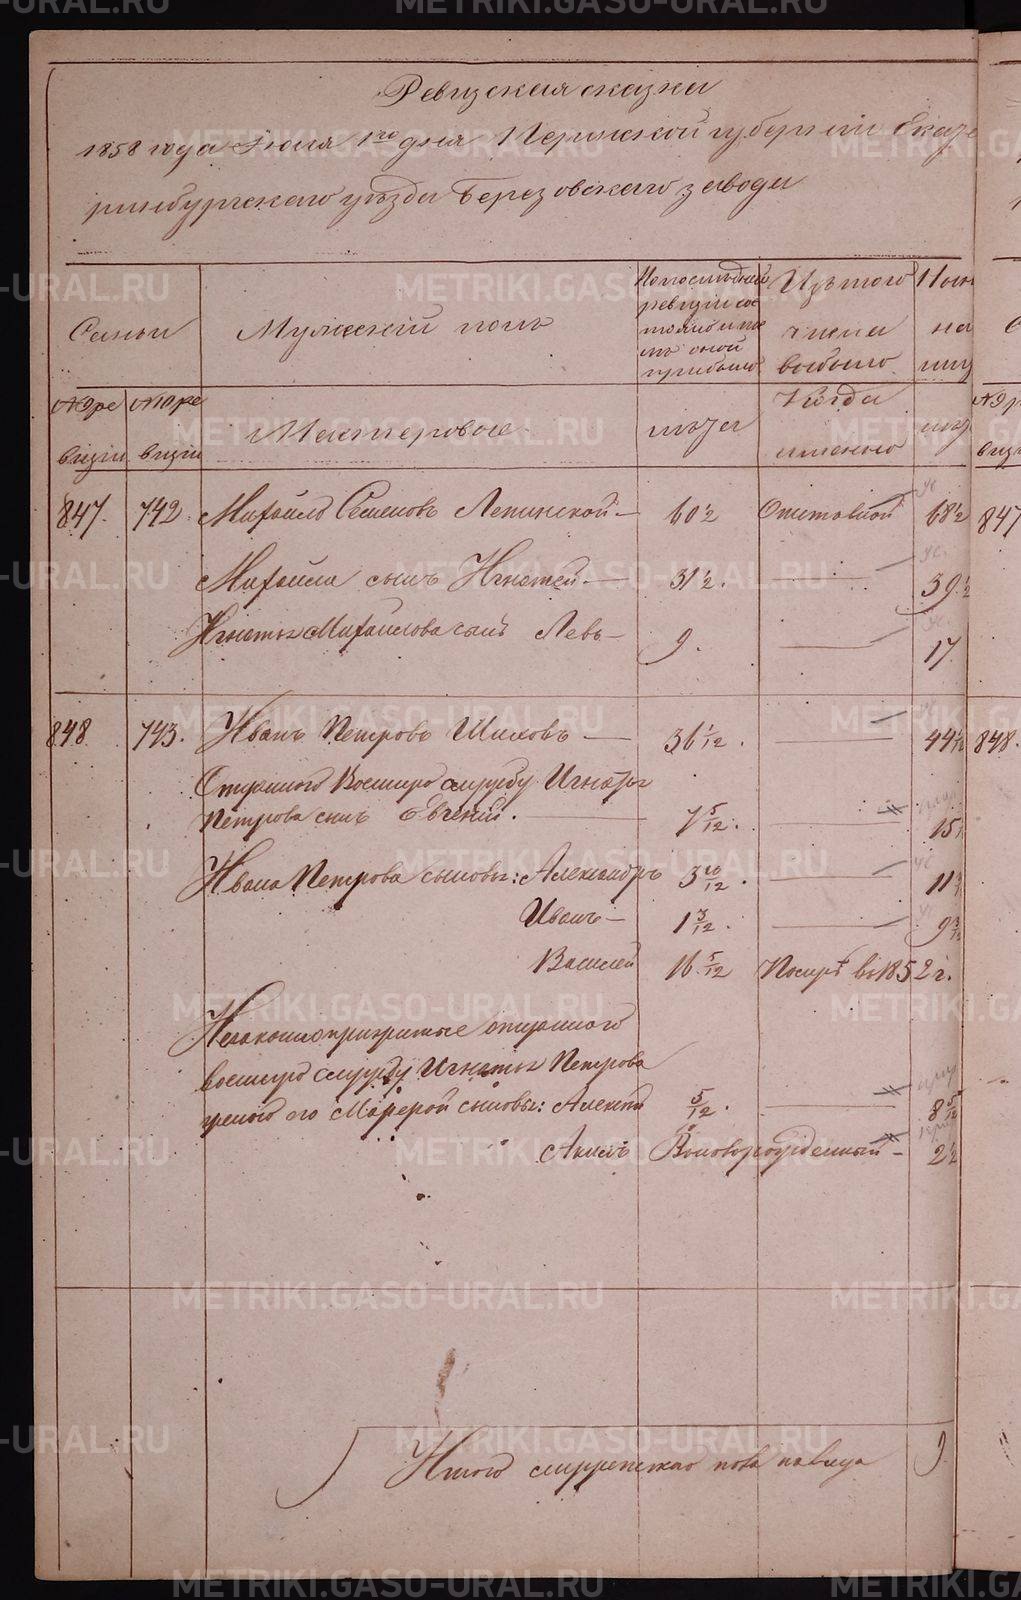 Ревизская сказка
1858 года Июля 1го дня Пермской губернии Екате
ринбургскаго уезда Березовскаго завода
Семьи
Мужескій полъ
По последней ревизіи состояло и после оной прибыло
Изъ того числа выбыло
Ныне на лицо
№ 9 ре визіи
№ 10 ре визіи
Мастеровые
лета
Когда именно
лета
847. 742. Михайло Семеновъ Лепинской — 60½ Отставной 68½ 847
Михайла сынъ Игнатей — 31½. — 39½
Игнатья Михайлова сынъ Левъ — 9. — 17
848. 743. Иванъ Петровъ Шиловъ — 36 1/12. — 44 848.
Отданного Военную службу Игнатья
Петрова сынъ Евгеній. — 7 5/12. — 15
Ивана Петрова сыновья: Александръ 3 10/12. — 11
Иванъ — 1 3/12. — 9 3/12
Василей 16 5/12 Помре въ 1852 г.
Незаконноприжитые отданного
военную службу Игнатья Петрова
женою его сыновья: Алексей 5/12. — 8 5/12
Акимъ Новорожденный — 2½
Итого мужескаго пола на лицо 9
METRIKI.GASO-URAL.RU